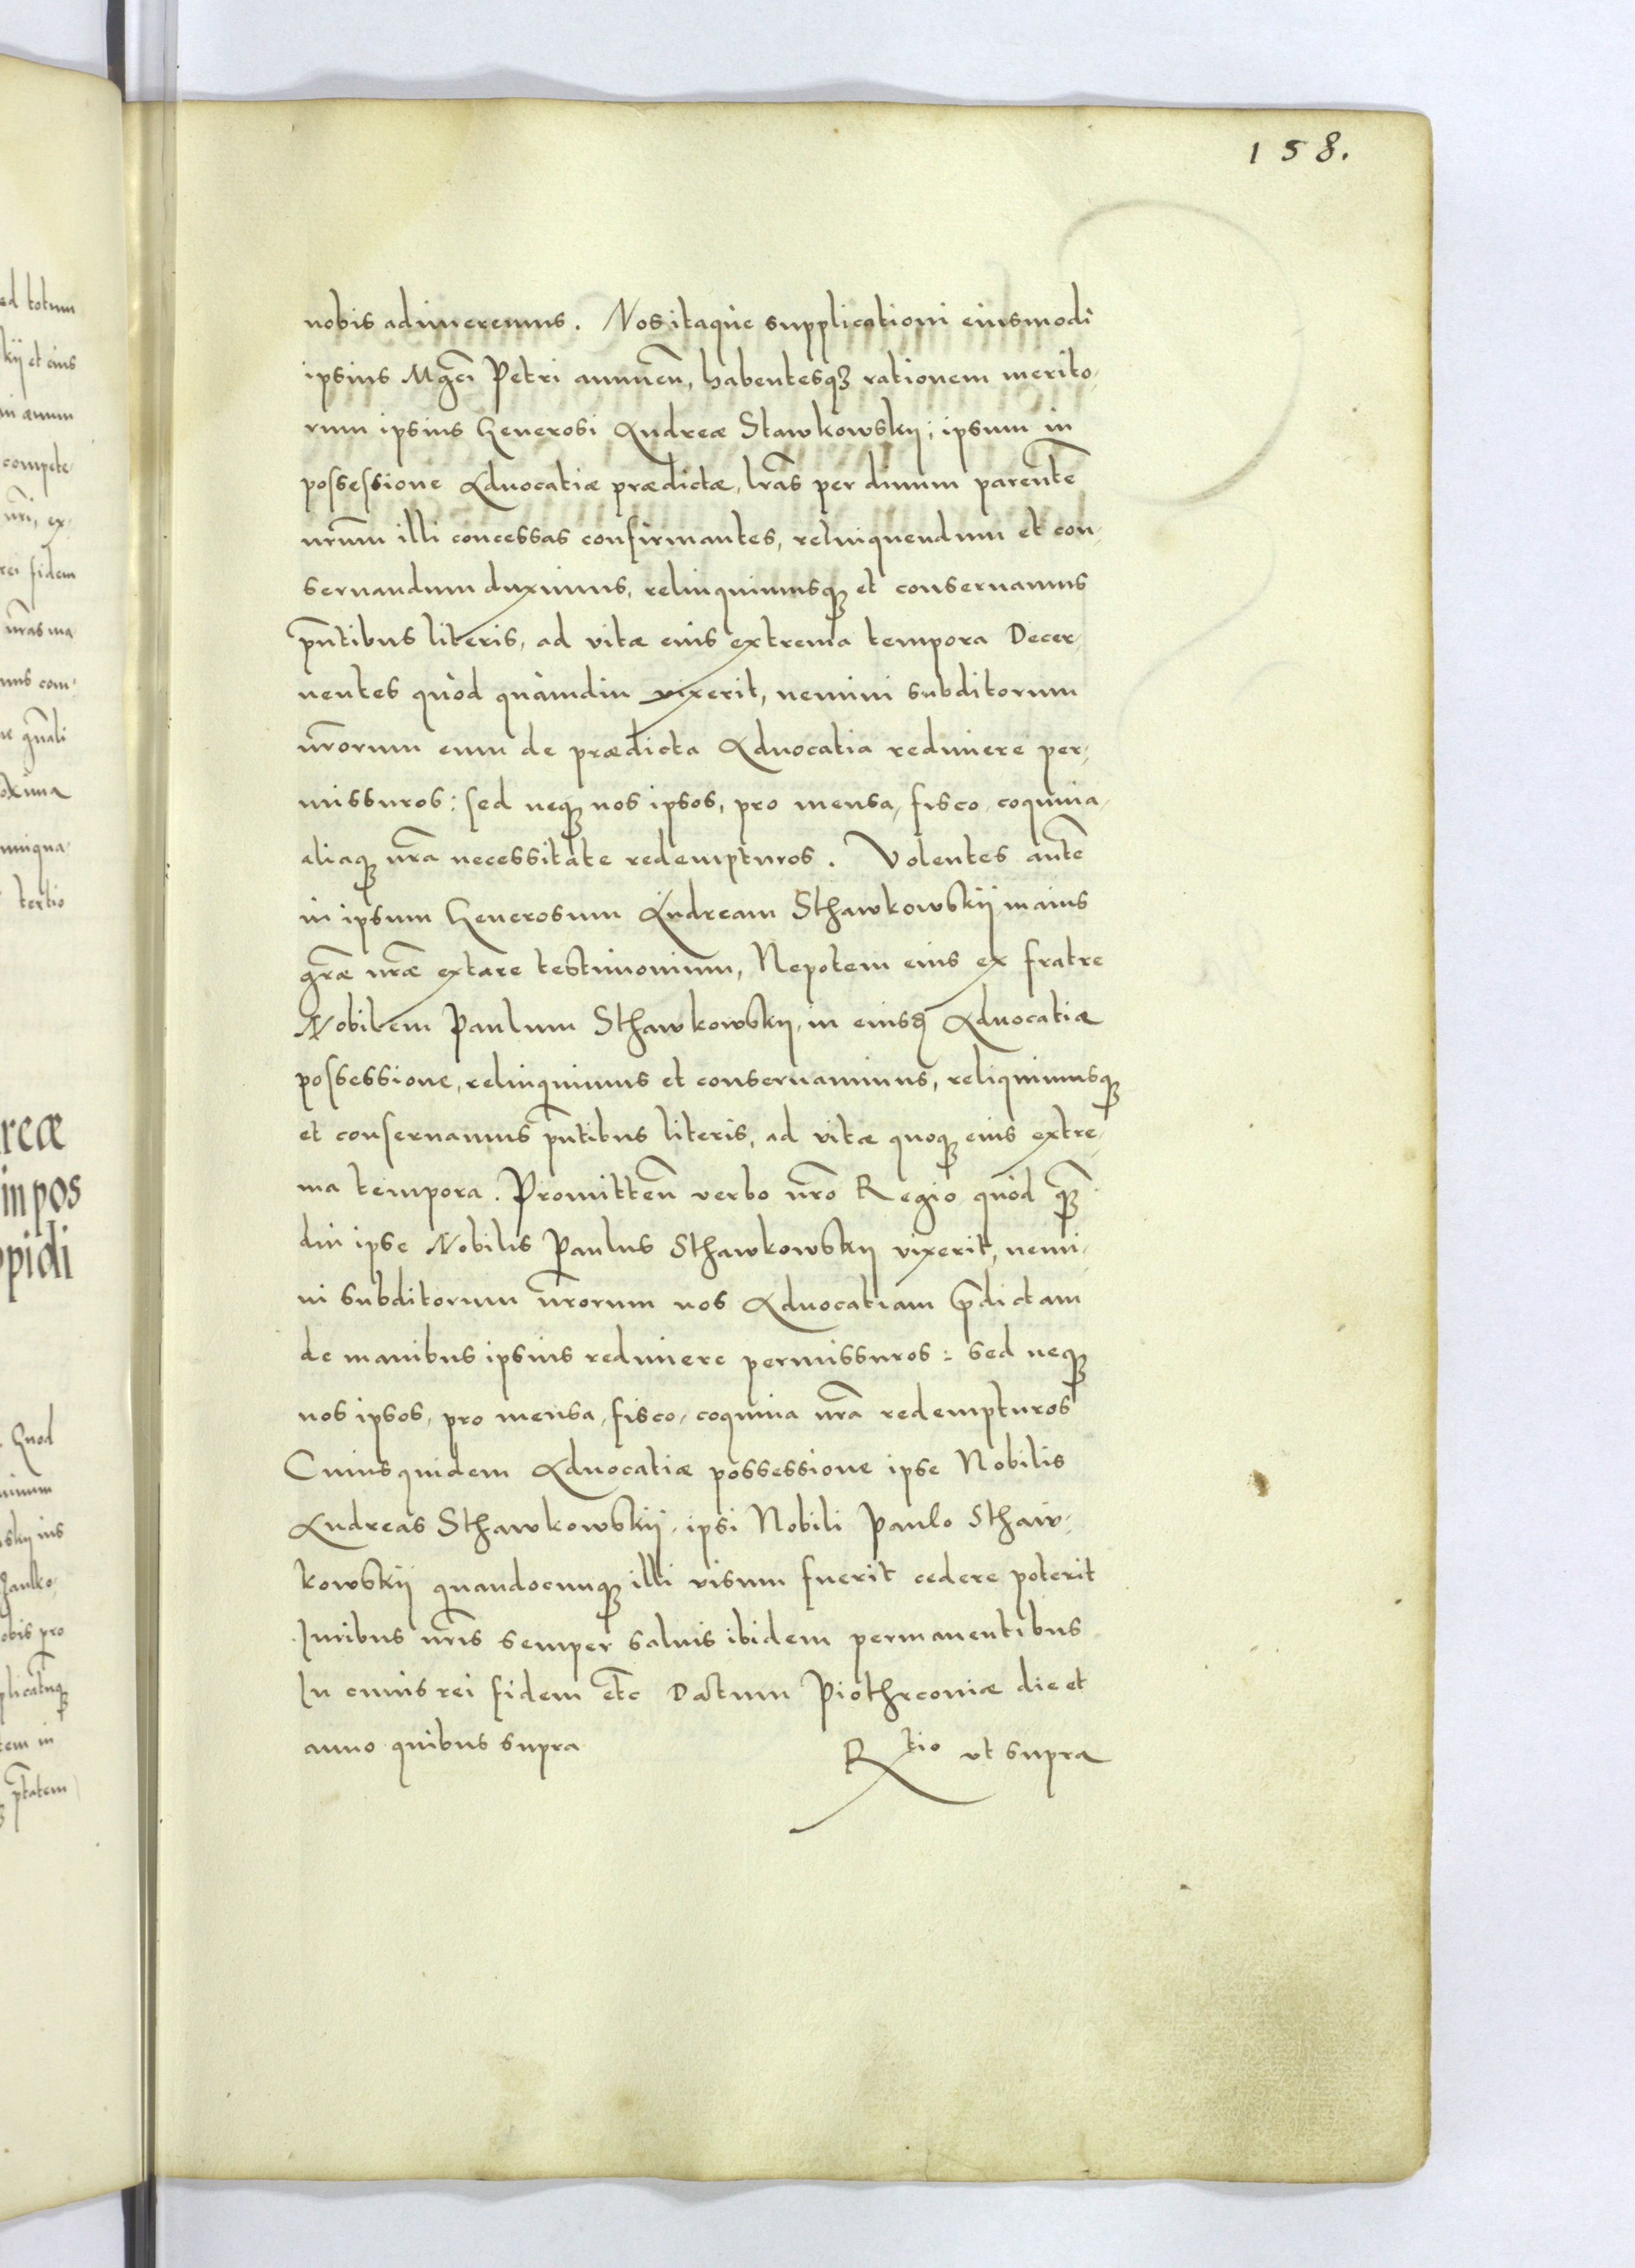 158.
nobis adimeremus. Nos itaque supplicationi eiusmodi
ipsius Mgci Petri annuen, habentesq3 rationem merito,
rum ipsius Generosi Andreæ Stawkowskij, ipsum in
possessione Advocatiæ prædictæ, lras per divum parente
nrum illi concessas confirmantes, relinquendum et con,
servandum duximus, relinquimusq3 et conservamus
pntibus literis, ad vitæ eius extrema tempora Decer,
nentes quod quamdiu vixerit, nemini subditorum
nrorum eum de prædicta Advocatia redimere per,
missuros: sed neq3 nos ipsos, pro mensa, fisco, coquina,
aliaq3 nra necessitate redempturos. Volentes aute
in ipsum Generosum Andream Sthawkowskij maius
græ nræ extare testimonium, Nepotem eius ex fratre
Nobilem Paulum Sthawkowskij, in eiusd Advocatiæ
possessione, relinquimus et conservamimus, reliquimusq3
et conservamus pntibus literis, ad vitæ quoq3 eius extre,
ma tempora. Promitten verbo nro Regio quod q3
diu ipse Nobilis Paulus Sthawkowskij vixerit, nemi,
ni subditorum nrorum nos Advocatiam pdictam
de manibus ipsius redimere permissuros: sed neq3
nos ipsos, pro mensa, fisco, coquina nra redempturos
Cuius quidem Advocatiæ possessione ipse Nobilis
Andreas Sthawkowskij, ipsi Nobili Paulo Sthaw,
kowskij quandocunq3 illi visum fuerit cedere poterit
Iuribus nris semper salvis ibidem permanentibus
In cuius rei fidem etc Datum Piothrconiæ die et
anno quibus supra
Rtio ut supra